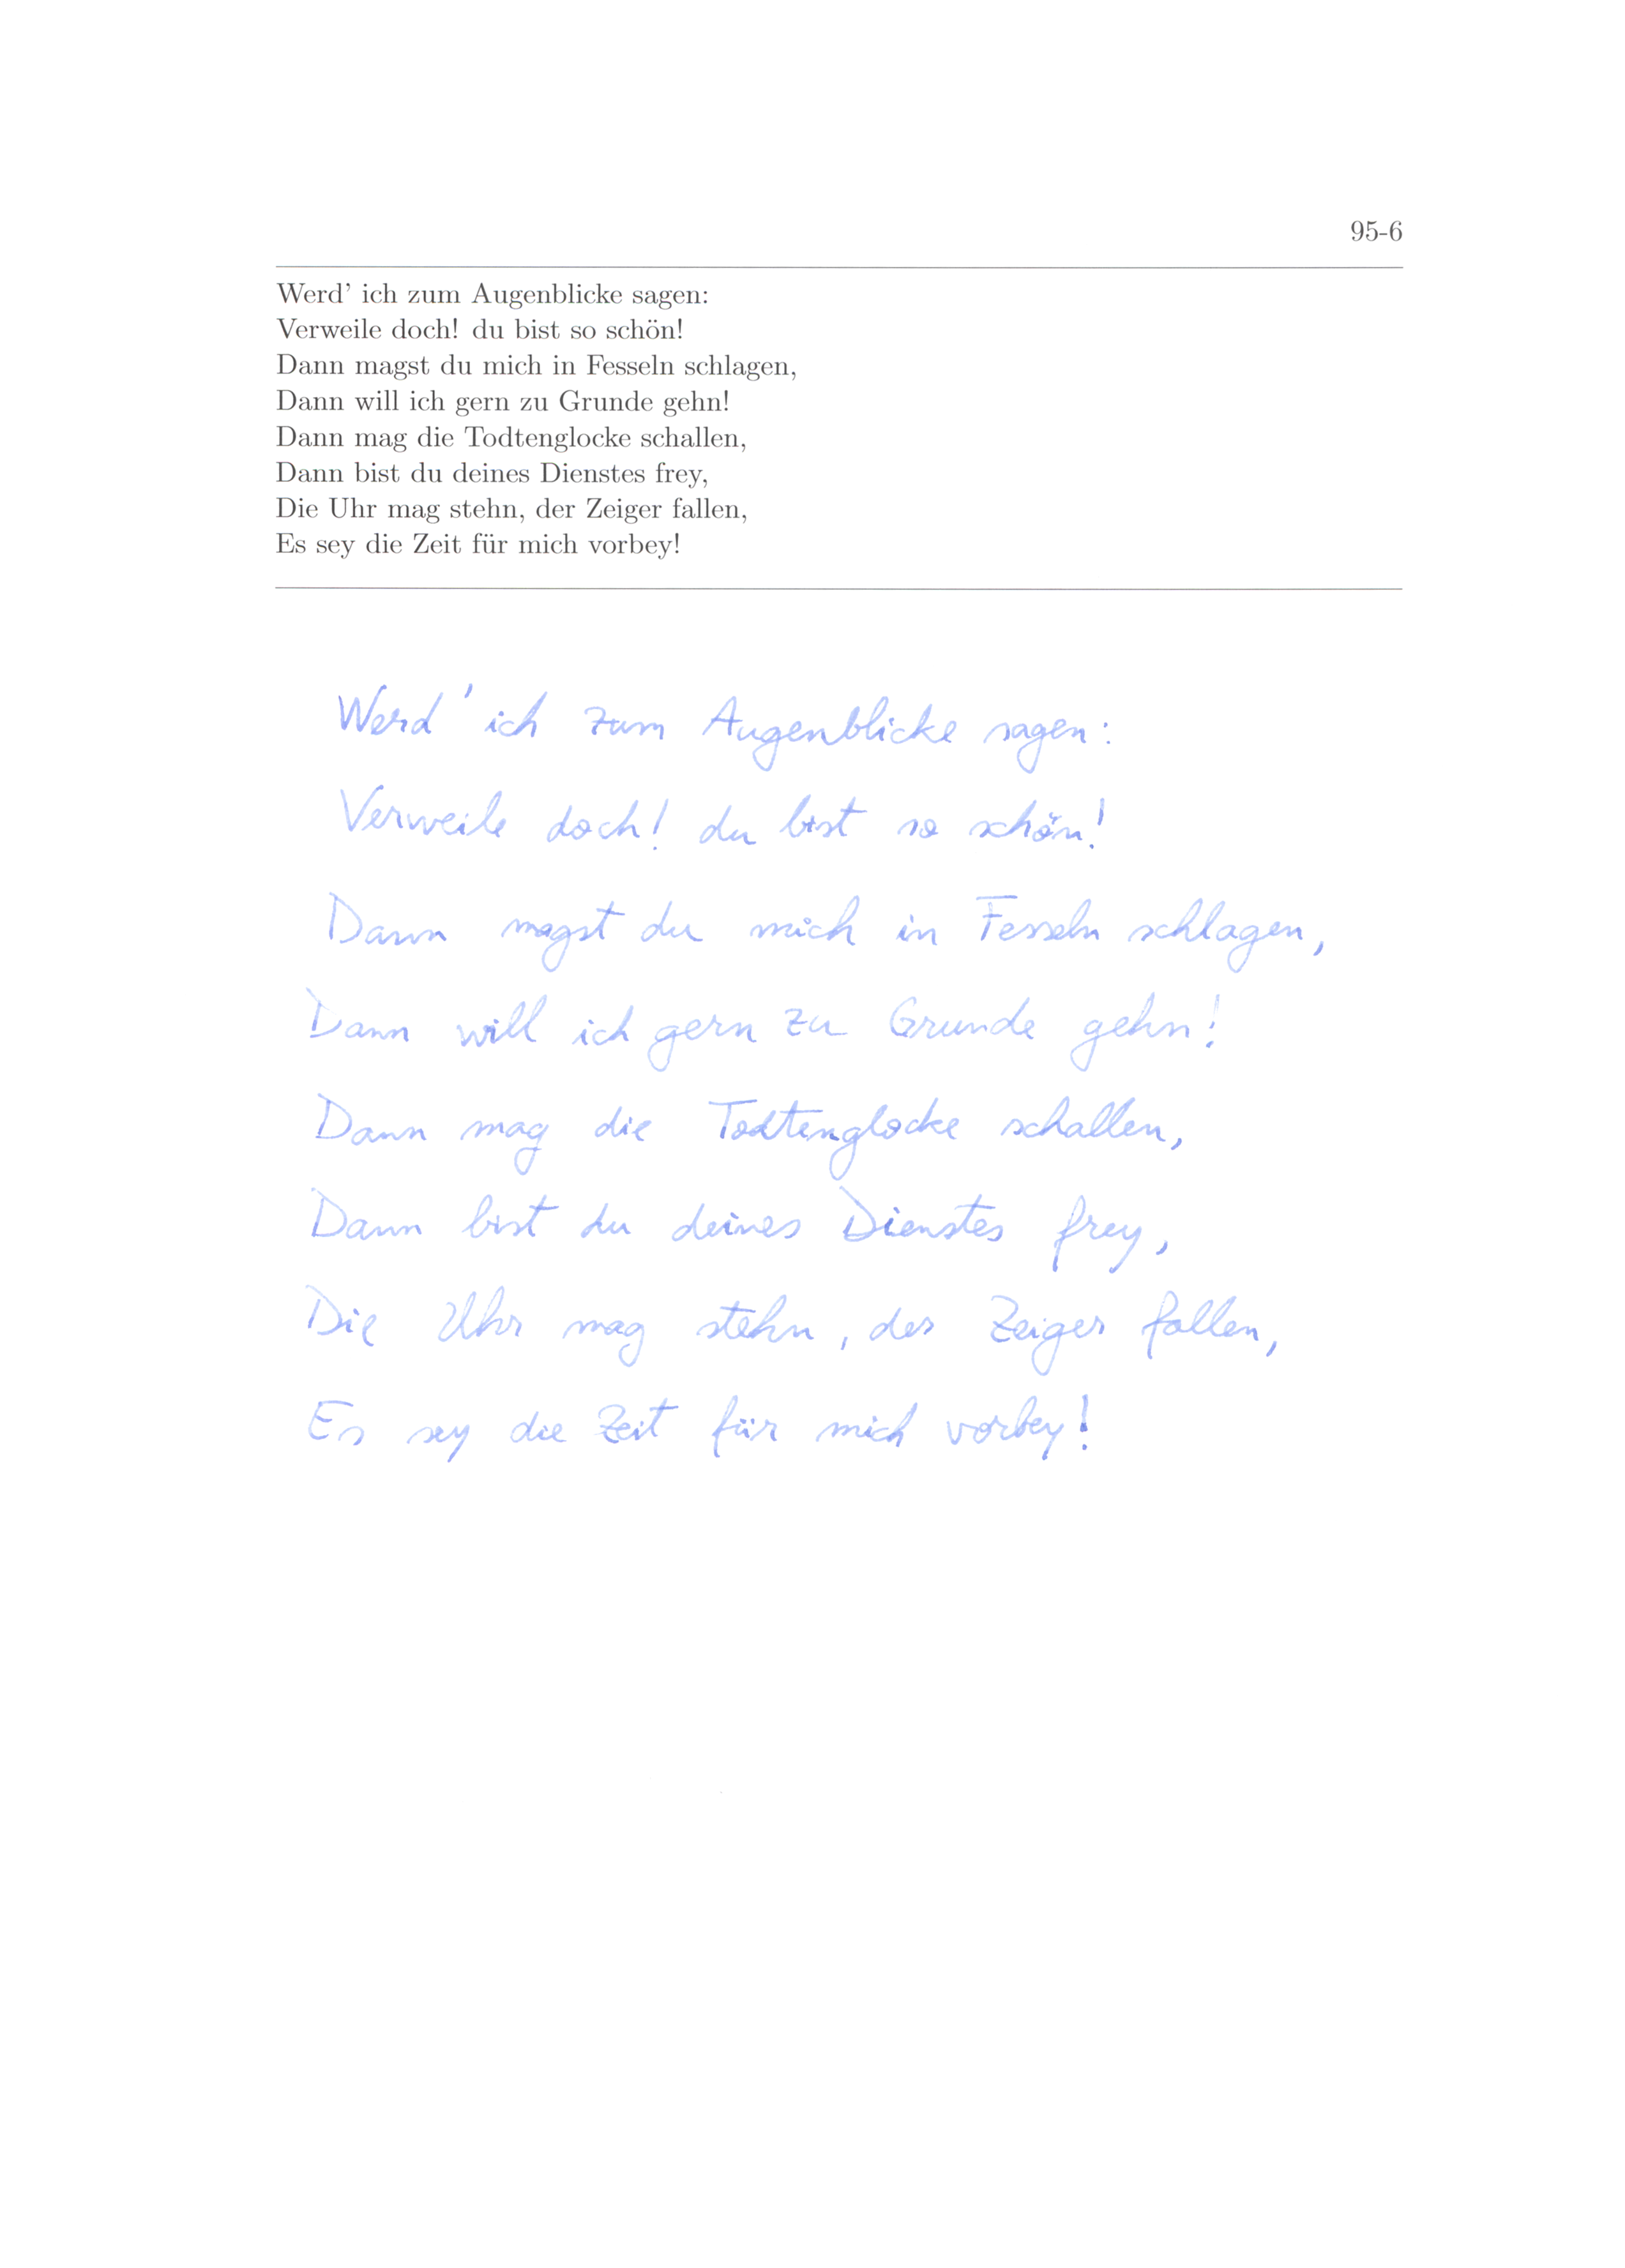 95-6
Werd' ich zum Augenblicke sagen:
Verweile doch! du bist so schön!
Dann magst du mich in Fesseln schlagen,
Dann will ich gern zu Grunde gehn!
Dann mag die Todtenglocke schallen,
Dann bist du deines Dienstes frey,
Die Uhr mag stehn, der Zeiger fallen,
Es sey die Zeit für mich vorbey!
Werd' ich zum Augenblicke sagen:
Verweile doch! du bist so schön!
Dann magst du mich in Fesseln schlagen,
Dann will ich gern zu Grunde gehn!
Dann mag die Todtenglocke schallen,
Dann bist du deines Dienstes frey,
Die Uhr mag stehn, der Zeiger fallen,
Es sey die Zeit für mich vorbey!